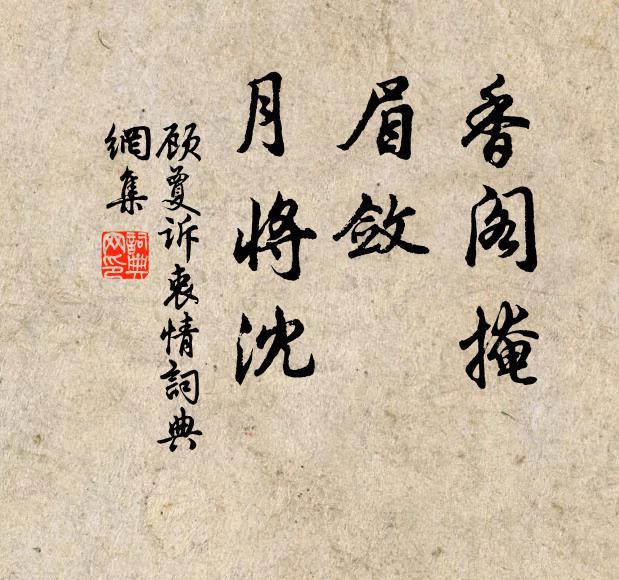 香阁掩
眉敛
月将沈
顾夐诉衷情詞典
網集
詞典
网印